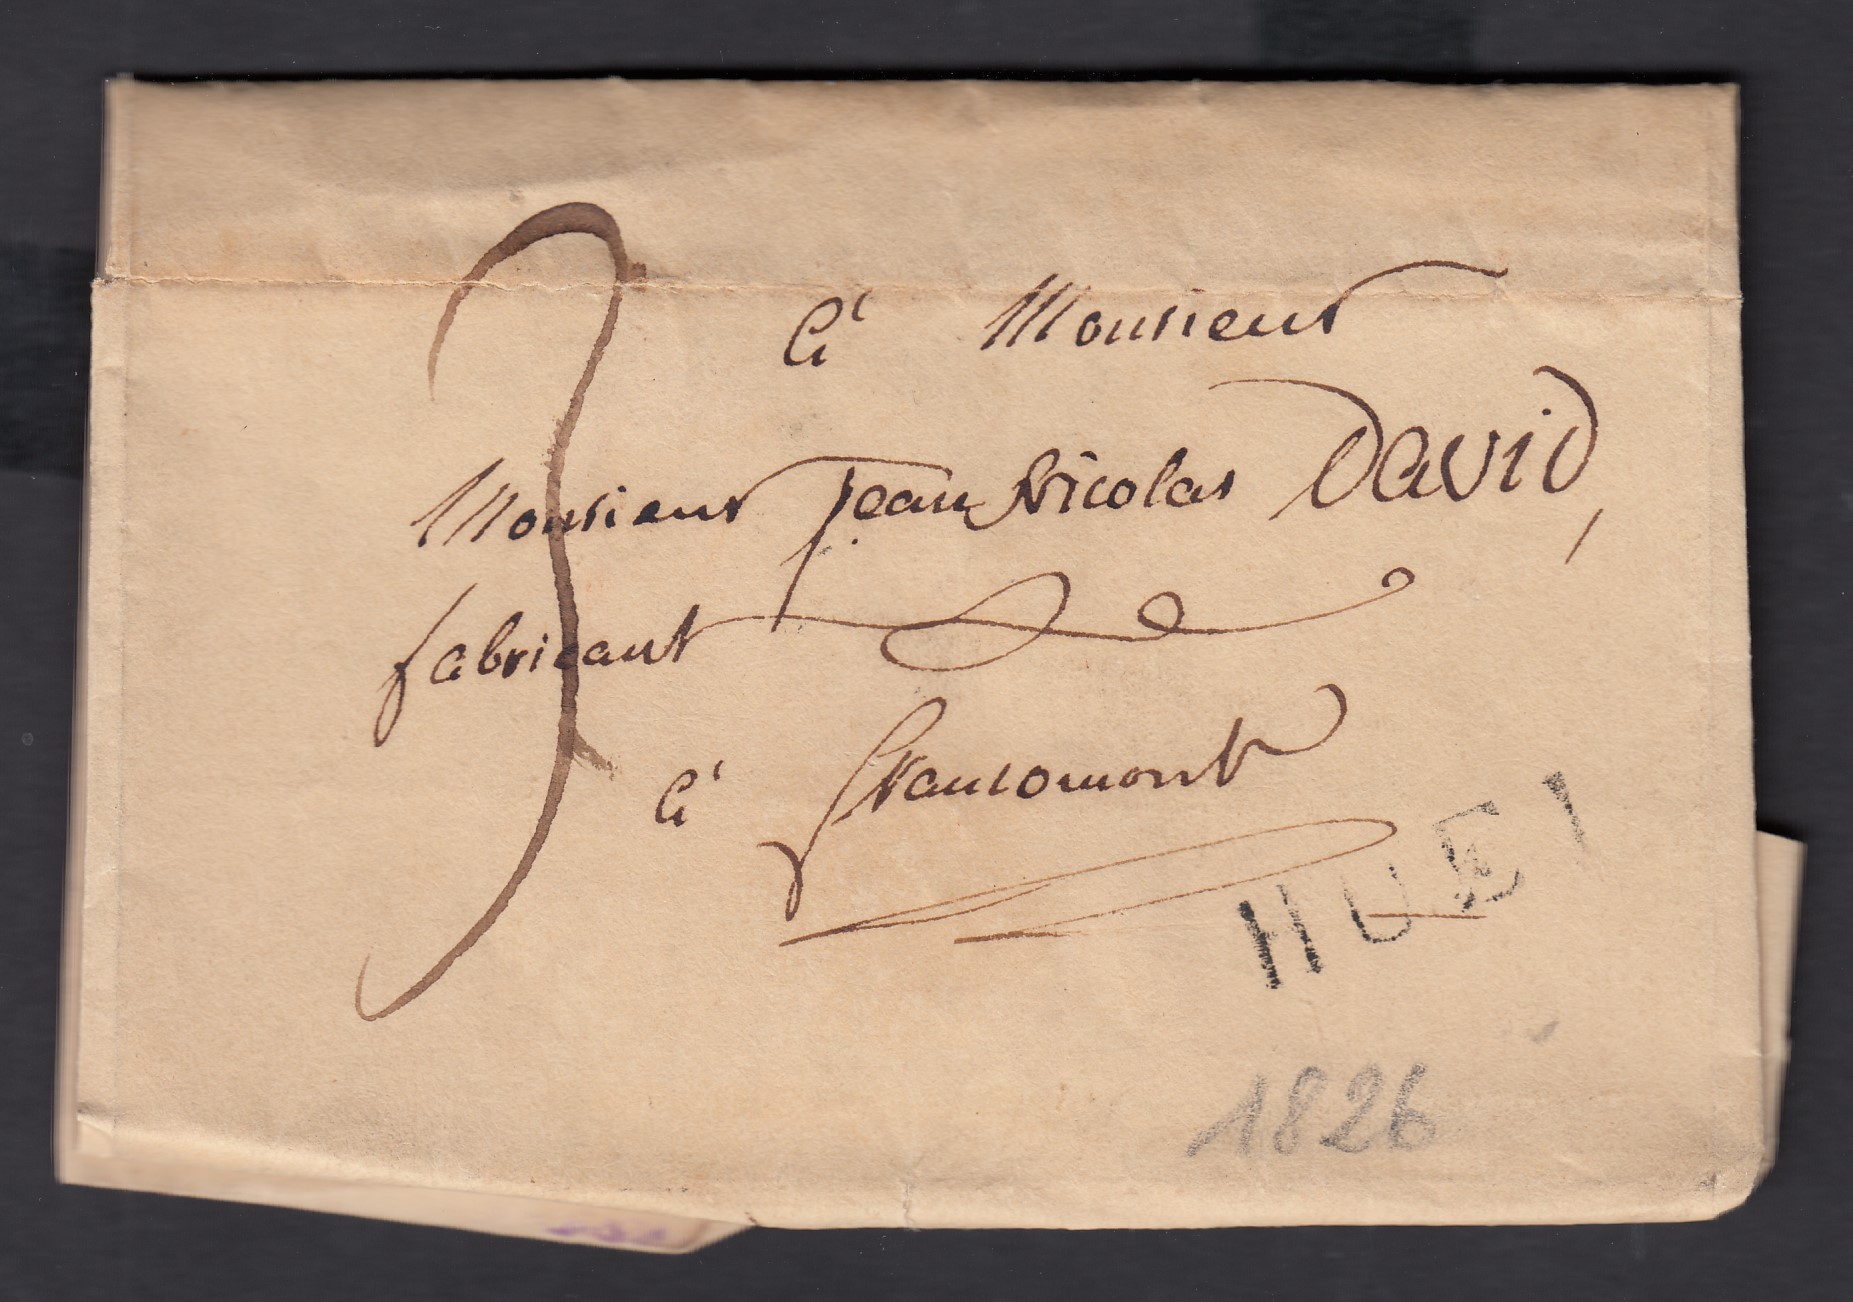 à Monsieur
Monsieur Jean Nicolas David,
fabricant
à francomont
3
HUEI
1826